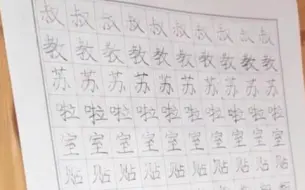 叔叔叔叔叔叔叔叔
教教教教教教教教教
苏苏苏苏苏苏苏苏苏
啦啦啦啦啦啦啦啦啦
室室室室室室室室室
贴贴贴贴贴贴贴贴